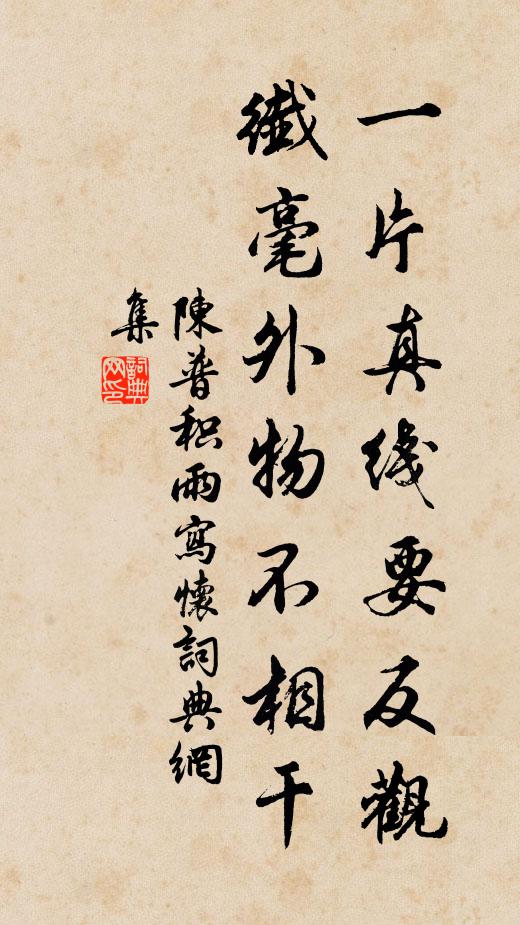 一片真线要反觀
纖毫外物不相干
陳普积雨寫懷詞典網
集
詞典
网印